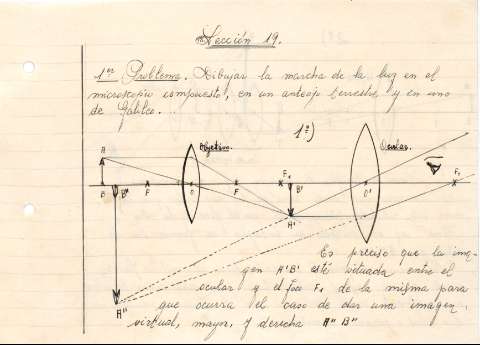 Lección 19.
1er Problema. Dibujar la marcha de la luz en el
microscopio compuesto, en un anteojo terrestre, y en uno
de Galileo.
1º)
Objetivo.
Ocular.
A
B
B"
F
O
F
F₁
B'
O'
F₁
A'
A"
Es preciso que la ima-
gen A'B' esté situada entre el
ocular y el foco F₁ de la misma para
que ocurra el caso de dar una imagen
virtual, mayor, y derecha A" B"